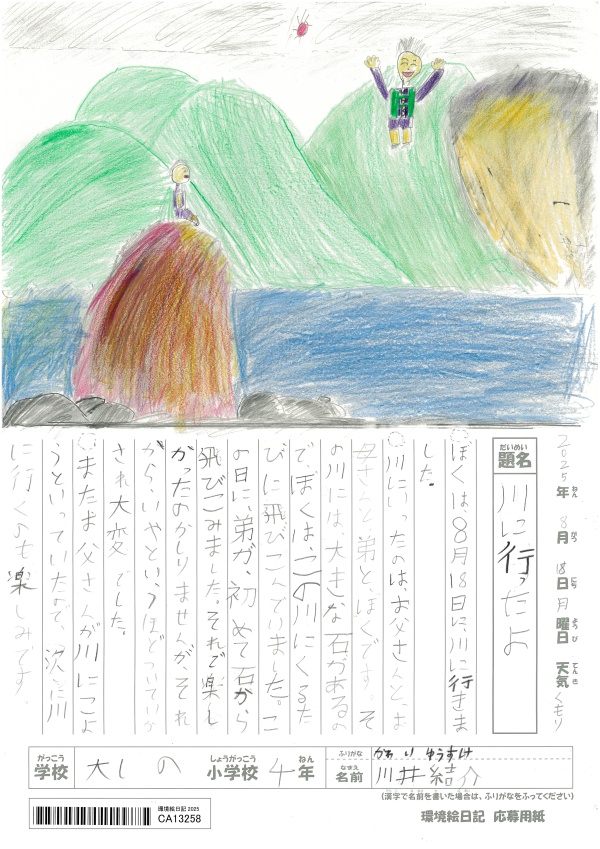 2025年 8月 18日 月曜日 天気 くもり
ねん がつ にち ようび てんき
だいめい
題名 川に行ったよ
ぼくは、8月18日に、川に行きま
した。
川にいったのは、お父さんと、お
母さんと、弟と、ぼくです。そ
の川には、大きな石があるの
でぼくは、この川にくるた
びに飛びこんでいました。こ
の日に、弟が、初めて石から
飛びこみました。それで楽し
かったのかしりませんが、それ
から、いやというほどついていか
され大変でした。
またお父さんが川にこよ
うといっていたので、次に川
に行くのも楽しみです。
がっこう しょうがっこう ねん
学校 大しの 小学校 4年
ふりがな かわい ゆうすけ
なまえ
名前 川井 結介
(漢字で名前を書いた場合は、ふりがなをふってください)
環境絵日記 2025
CA13258
環境絵日記 応募用紙